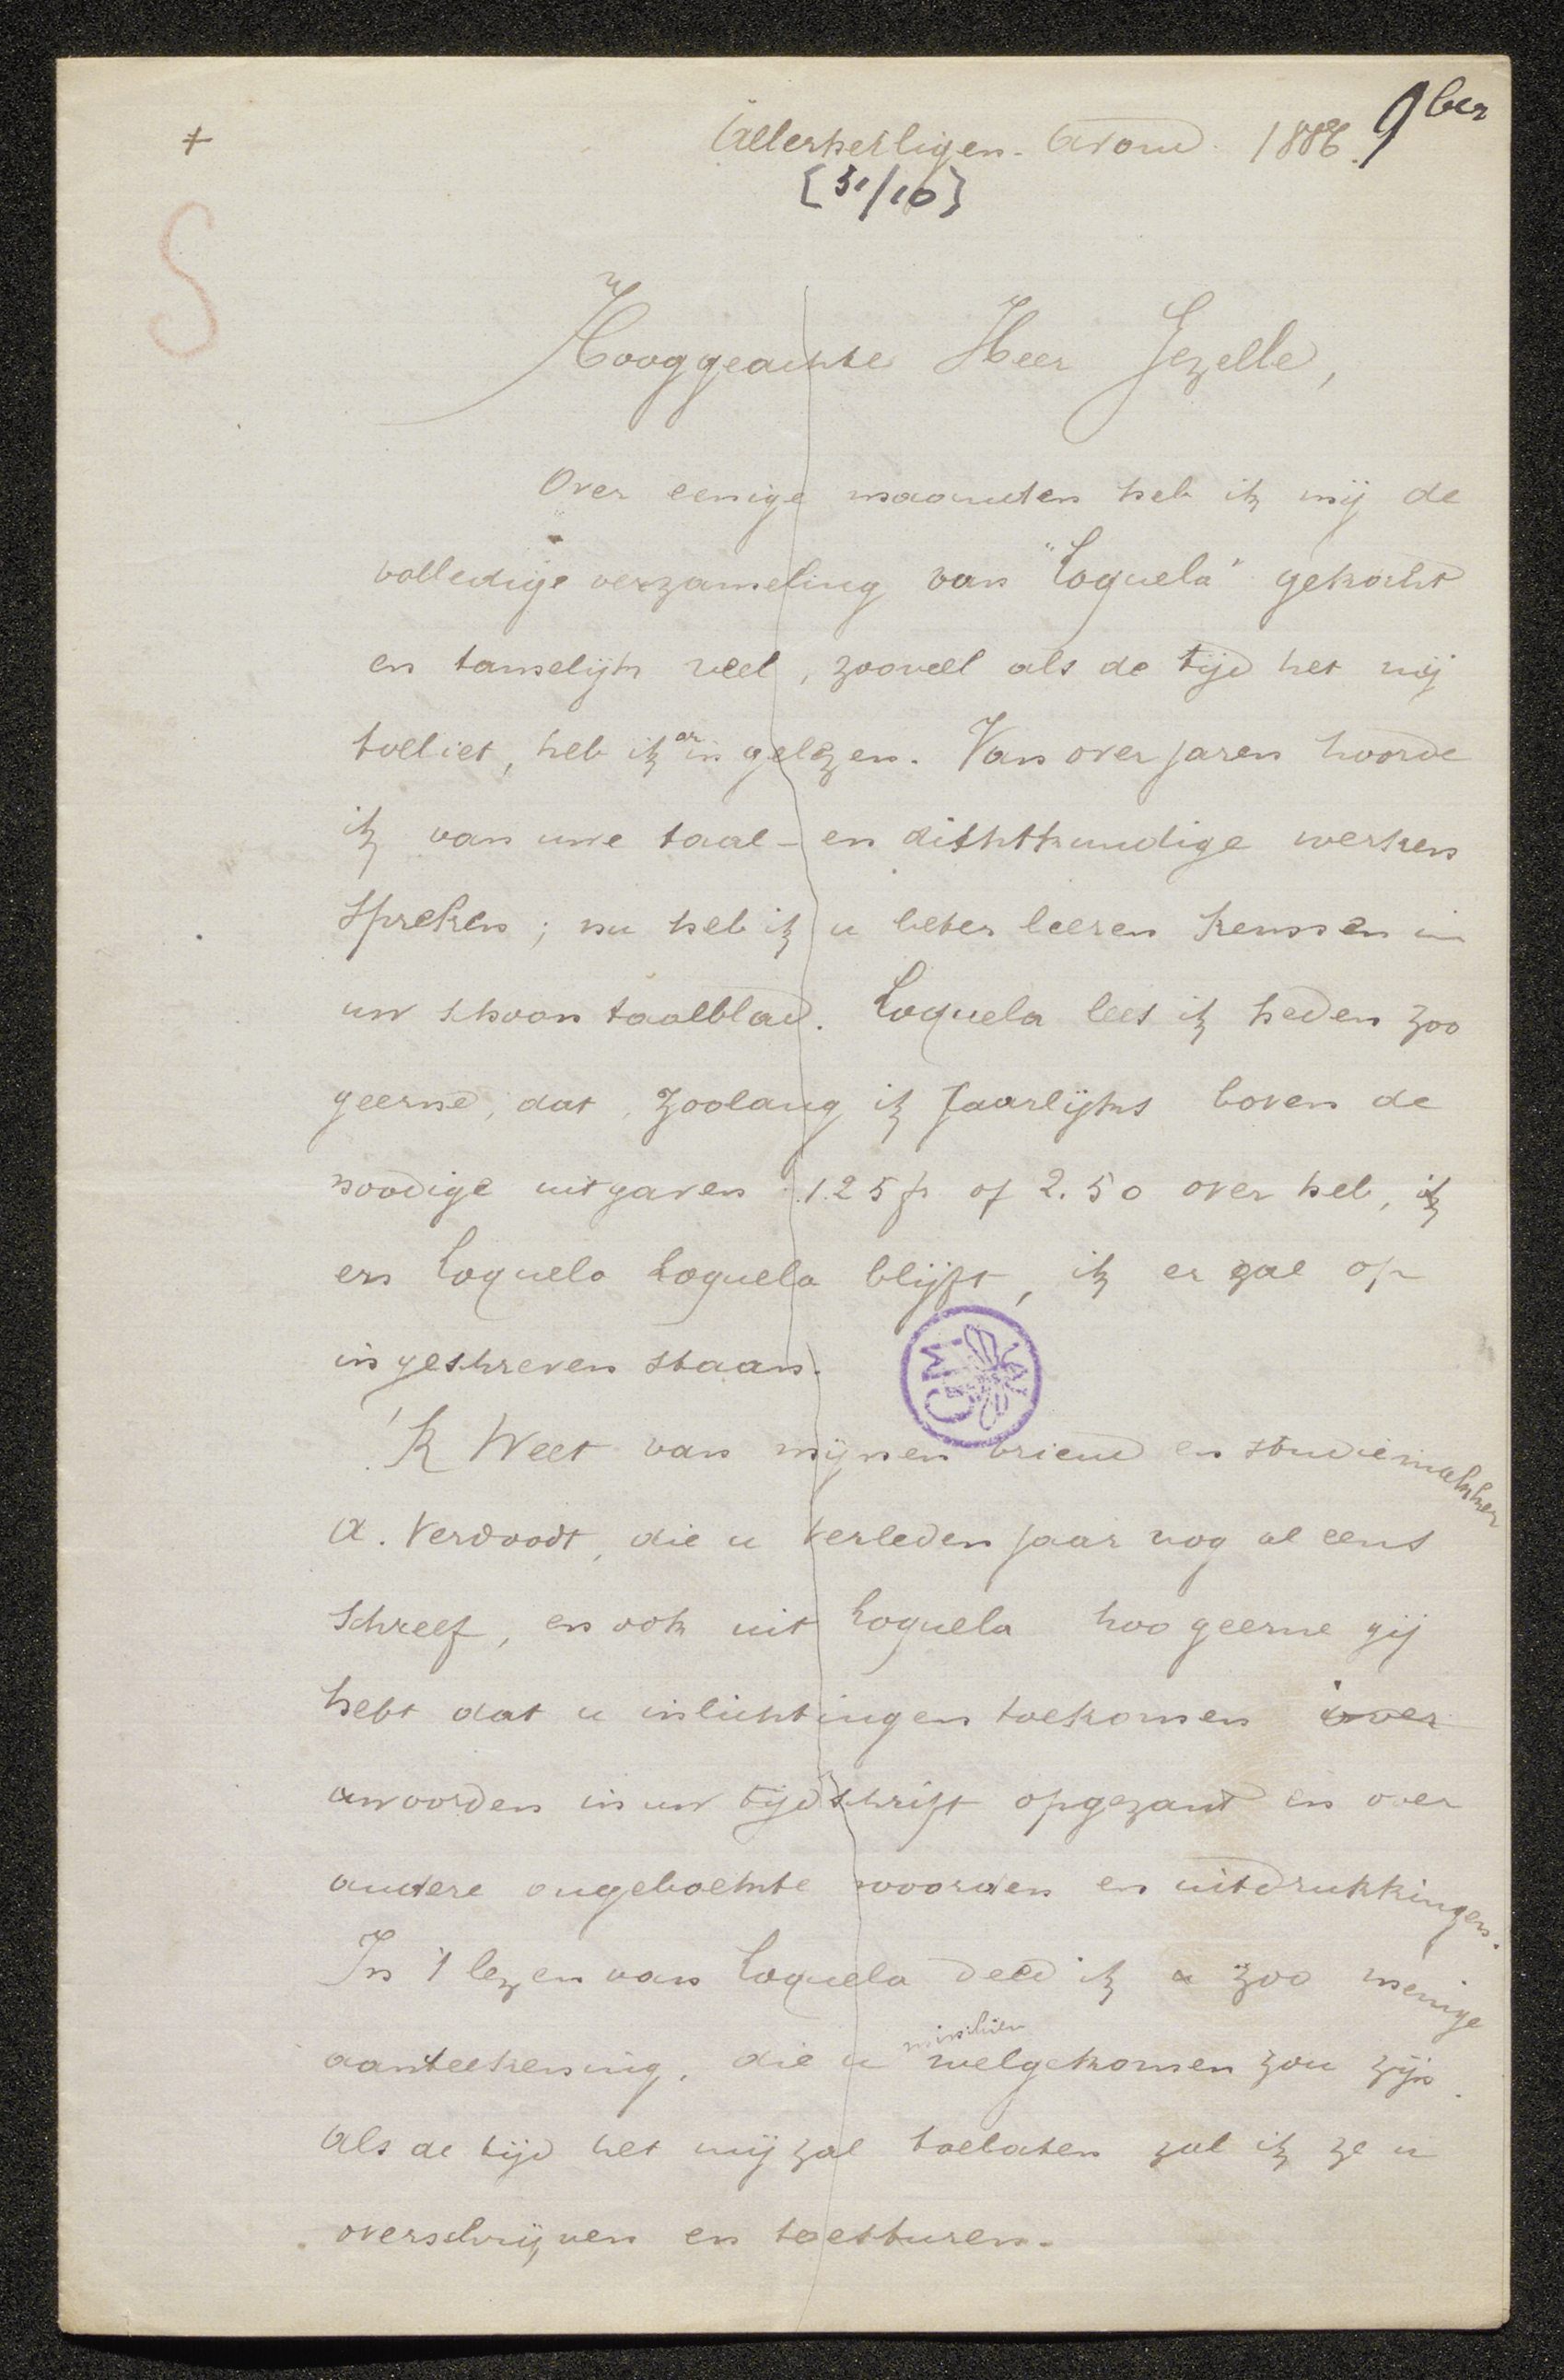 + Allerheiligen-Avond. 1886. 9ber
[31/10]
S
Hooggeachte Heer Gezelle,
Over eenige maanden heb ik mij de
volledige verzameling van "Loquela" gekocht
en tamelijk veel, zooveel als de tijd het mij
toeliet, heb ik er in gelezen. Van over jaren hoorde
ik van uwe taal- en dichtkundige werken
spreken; nu heb ik u beter leeren kennen in
uw schoon taalblad. Loquela lees ik heden zoo
geerne, dat, zoolang ik jaarlijks boven de
noodige uitgaven 1.25 fr of 2.50 over heb,
en Loquela Loquela blijft, ik er zal op
ingeschreven staan.
GM
'K Weet van mijnen vriend en studiemakker
A. Verdoodt, die u verleden jaar nog al eens
schreef, en ook uit Loquela hoo geerne gij
hebt dat u inlichtingen toekomen over
woorden in uw tijdschrift opgezant en over
andere ongeboekte woorden en uitdrukkingen.
In 't lezen van Loquela deed ik zoo menige
aanteekening, die u misschien welgekomen zou zijn.
Als de tijd het mij zal toelaten zal ik ze u
overschrijven en toesturen.